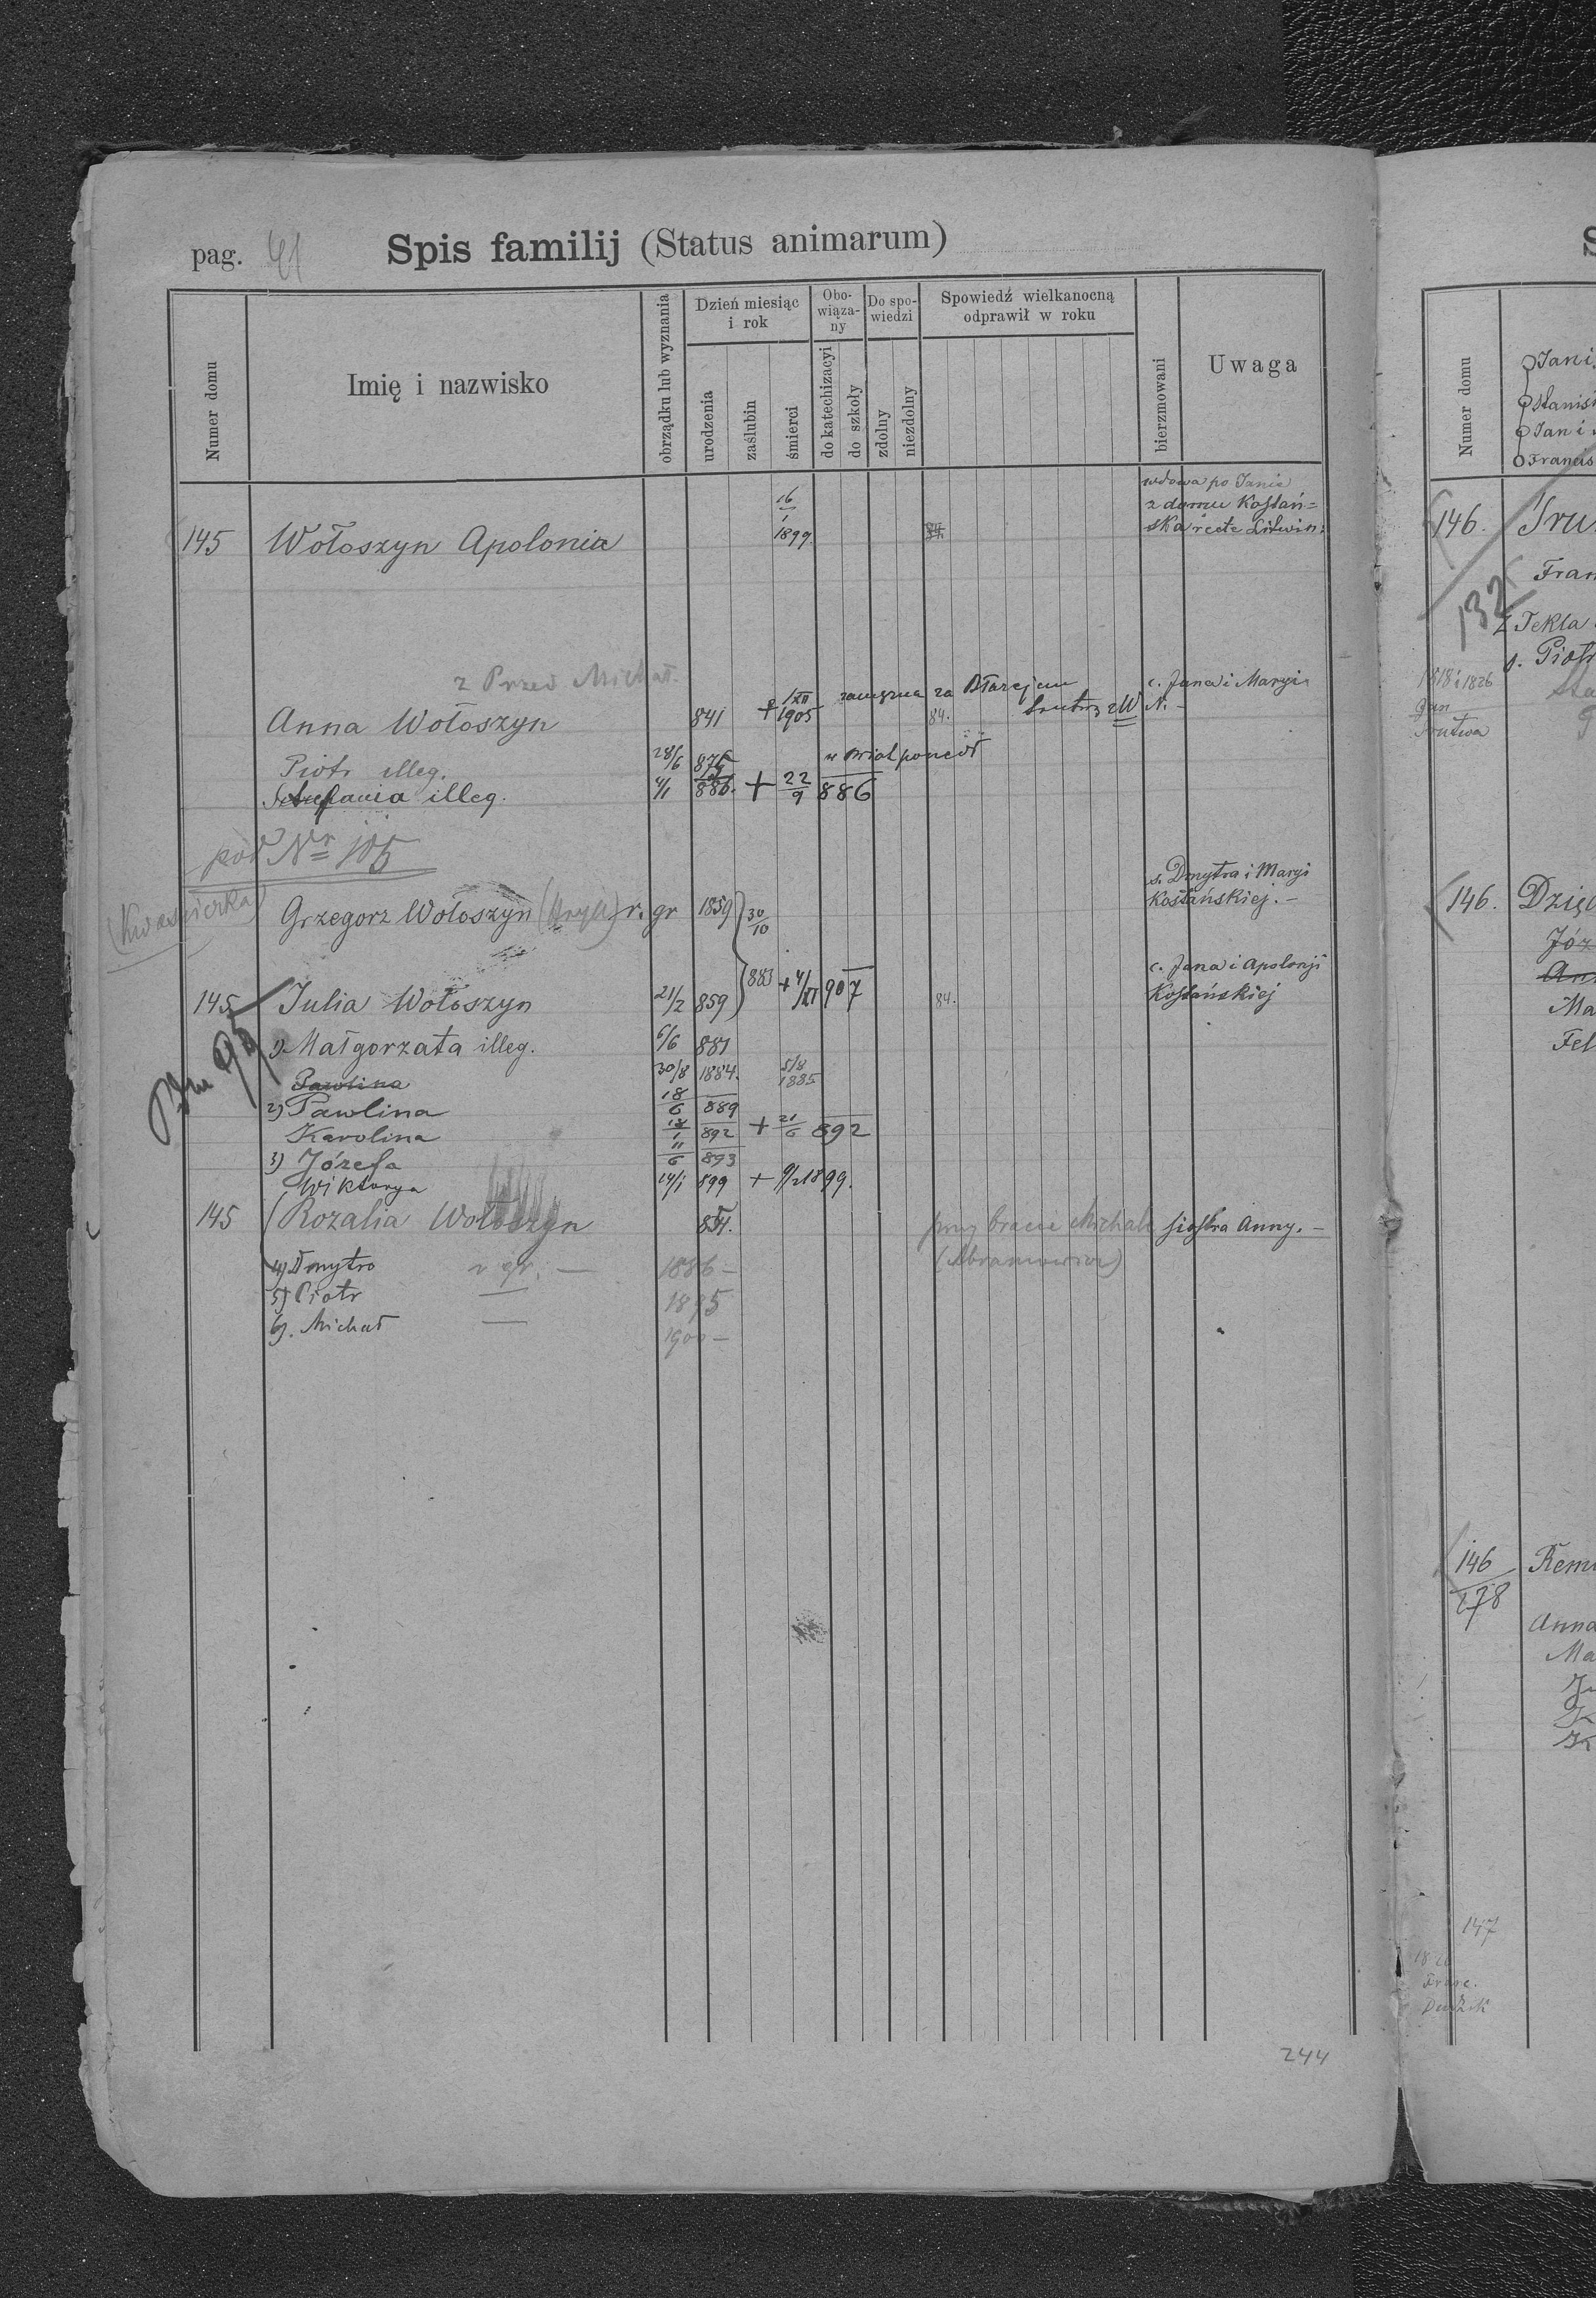 pag. 41 Spis familij (Status animarum)
Numer domu
Imię i nazwisko
obrządku lub wyznania
Dzień miesiąc i rok
urodzenia
zaślubin
śmierci
Obo-wiąza-ny
do katechizacyi
do szkoły
Do spo-wiedzi
zdolny
niezdolny
Spowiedź wielkanocną odprawił w roku
bierzmowani
Uwaga
wdowa po Janie
z domu Kostań=
ska recte Litwin:
16/1 1899
145 Wołoszyn Apolonia 84.
z Przed Michał.
Anna Wołoszyn 841 + 1/XII 1905 zamężna za Błażejem 84. c. Jana i Maryi N. -
Piotr illeg. 28/6 875
Stefania illeg. 4/1 886. + 22/9 886
pod Nr 105
Grzegorz Wołoszyn r. gr 1859 30/10 s. Dmytra i Maryi Kostańskiej. -
883 + 4/XI 907
145 Julia Wołoszyn 21/2 859 84. c. Jana i Apolonji Kostańskiej
1) Małgorzata illeg. 6/6 881
Pawlina 30/8 1884. 5/8 1885
2) Pawlina 18/6 889
Karolina 18/1 892 + 21/6 892
3) Józefa 11/6 893
Wiktorya 14/1 899 + 9/2 1899.
145 Rozalia Wołoszyn 854. przy bracie Michale siostra Anny. -
(Abramowicz)
4) Dmytro r gr. - 1886 -
5) Piotr — 1895
6). Michał — 1900 -
244
Numer domu
Jan i
Stanis
Jan i
Francis
146.
132
Fran
Tekla
s. Piotr
1826
146. Dzię
Józ
Ma
Fel
146/278 Rem
Anna
Ma
147